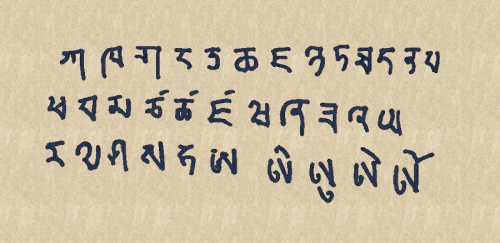 ཀ ཁ ག ང ཅ ཆ ཇ ཉ ཏ ཐ ད ན པ
ཕ བ མ ཙ ཚ ཛ ཝ ཞ ཟ འ ཡ
ར ལ ཤ ས ཧ ཨ ཨི ཨུ ཨེ ཨོ